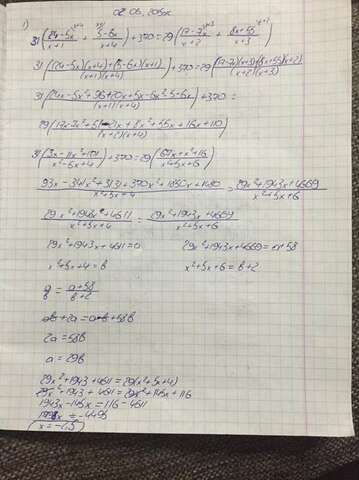 02.06.2015г
1)
31((24-5x)/(x+1) + (5-6x)/(x+4)) + 370 = 29((17-7x)/(x+2) + (8x+55)/(x+3))
31(((24-5x)(x+4)+(5-6x)(x+1))/((x+1)(x+4))) + 370 = 29(((17-7x)(x+3)(8x+55)(x+2))/((x+2)(x+3)))
31((24x-5x²+96-20x+5x-6x²+5-6x)/((x+1)(x+4))) + 370 =
29((17x-7x²+51-21x+8x²+55x+16x+110)/((x+2)(x+3)))
31((3x-11x²+101)/(x²+5x+4)) + 370 = 29((67x+x²+161)/(x²+5x+6))
(93x-341x²+3131+370x²+1850x+1480)/(x²+5x+4) = (29x²+1943x+4669)/(x²+5x+6)
(29x²+1943x+4611)/(x²+5x+4) = (29x²+1943x+4669)/(x²+5x+6)
29x²+1943x+4611=a 29x²+1943x+4669=a+58
x²+5x+4=b x²+5x+6=b+2
a/b = (a+58)/(b+2)
ab+2a=ab+58b
2a=58b
a=29b
29x²+1943+4611=29(x²+5x+4)
29x²+1943+4611=29x²+145x+116
1943x-145x=116-4611
1798x=-4495
x=-2,5